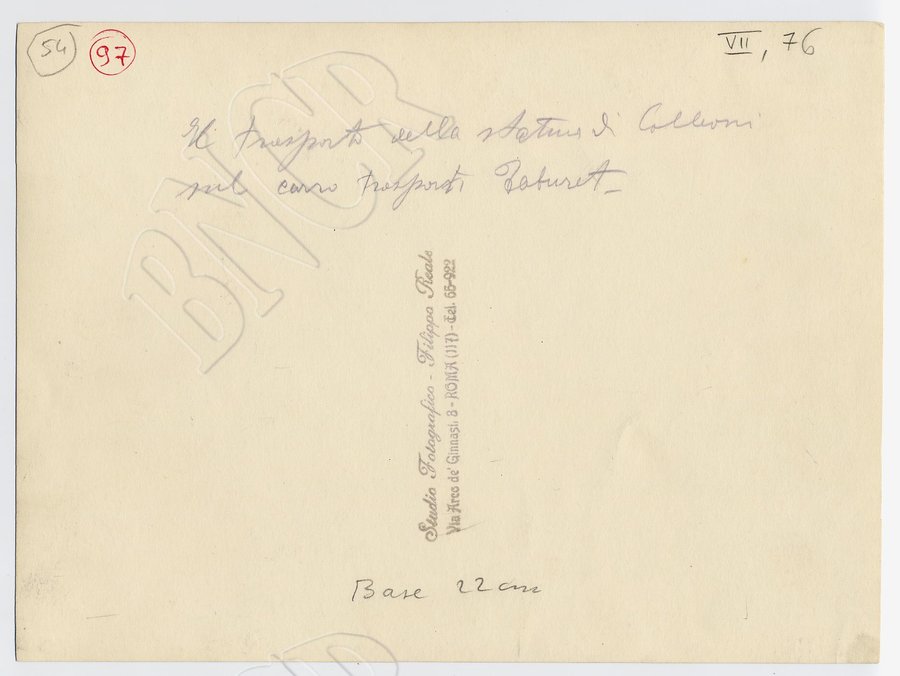 54
97
VII, 76
Il trasporto della statua di Colleoni
sul carro trasporti Taburet
Studio Fotografico - Filippo Reale
Via Arco de' Ginnasi. 8 - ROMA (117) - Tel. 65-922
Base 22 cm
BNCR